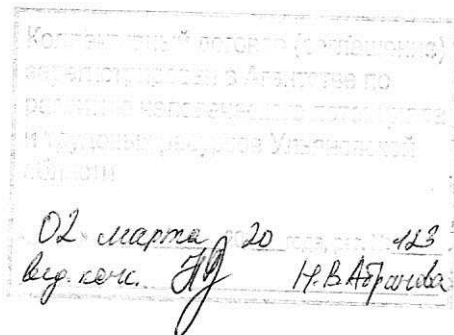 Коллективный договор (соглашение)
зарегистрирован в Агентстве по
развитию человеческого потенциала
и трудовых ресурсов Ульяновской
области
02 марта 20 123
вед. конс. Н.В. Абрамова